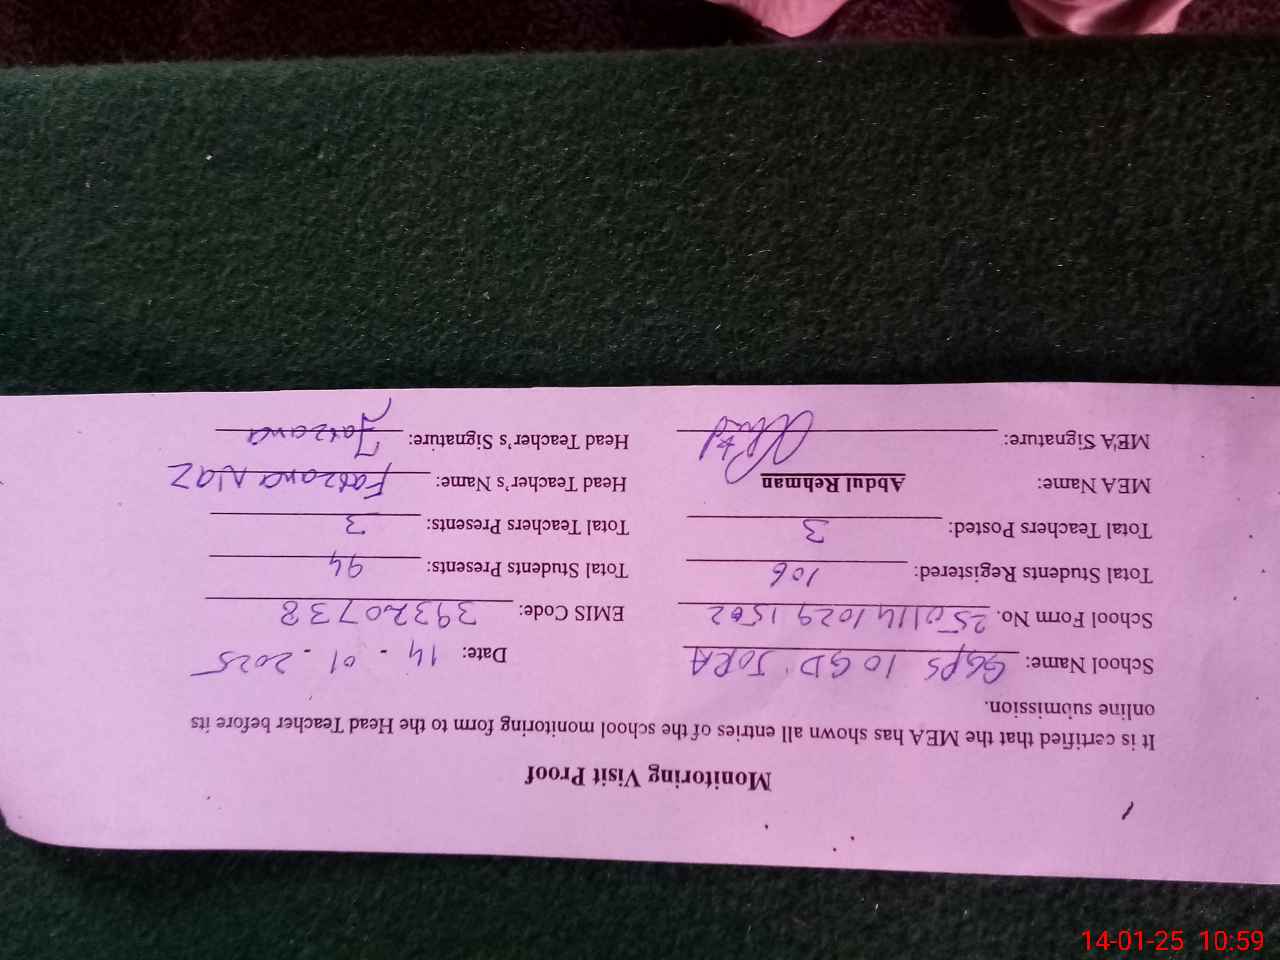 Monitoring Visit Proof
It is certified that the MEA has shown all entries of the school monitoring form to the Head Teacher before its
online submission.
School Name: GGPS 10 GD JORA Date: 14 - 01 - 2025
School Form No. 25011410291502 EMIS Code: 39320738
Total Students Registered: 106 Total Students Presents: 94
Total Teachers Posted: 3 Total Teachers Presents: 3
MEA Name: Abdul Rehman Head Teacher's Name: Farzana Naz
MEA Signature: Head Teacher's Signature: Farzana
14-01-25 10:59